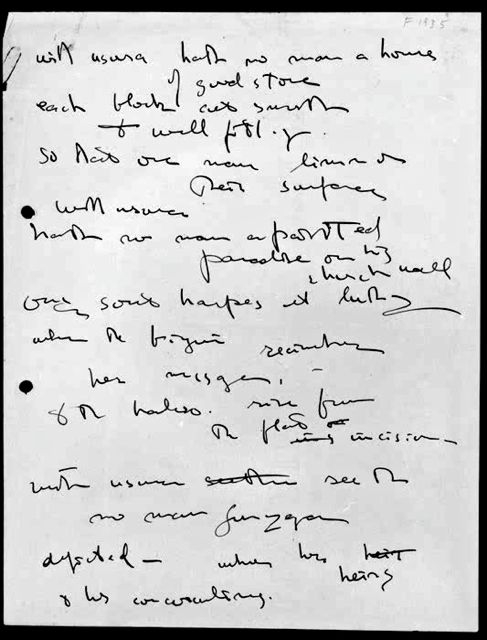 F 1935
with usura hath no man a house
of good stone
each block cut smooth
& well fitting.
so that one man limn on
their surfaces
with usura
hath no man a painted
paradise on his
church wall
harpes et luthes
when the virgin receiveth
her message,
& the haloes. rise from
the flat incision —
with usura seeth
no man Gonzaga
depicted — when his heirs
& his concubines.